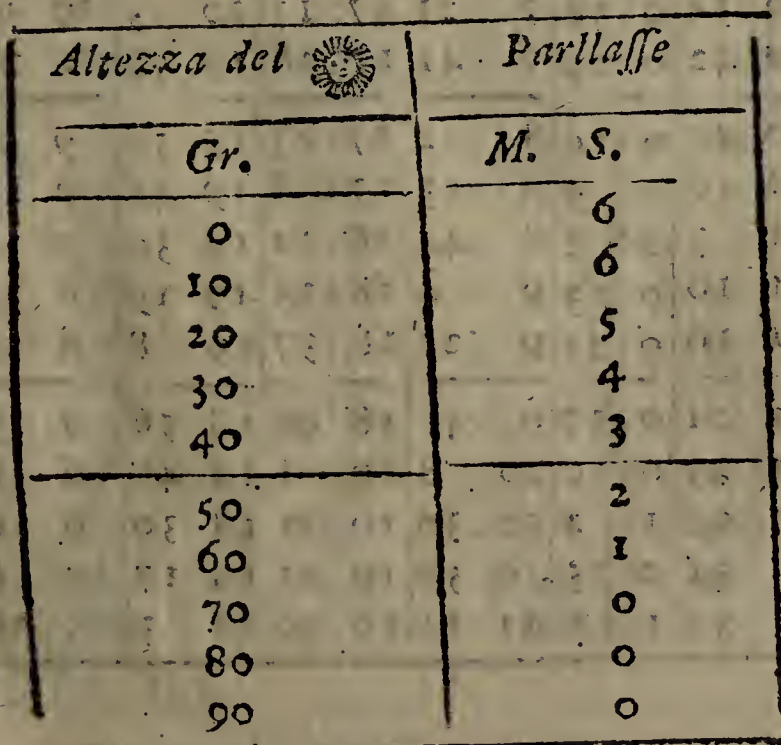 Altezza del Parllaſſe
Gr. M. S.
0 6
10 6
20 5
30 4
40 3
50 2
60 1
70 0
80 0
90 0